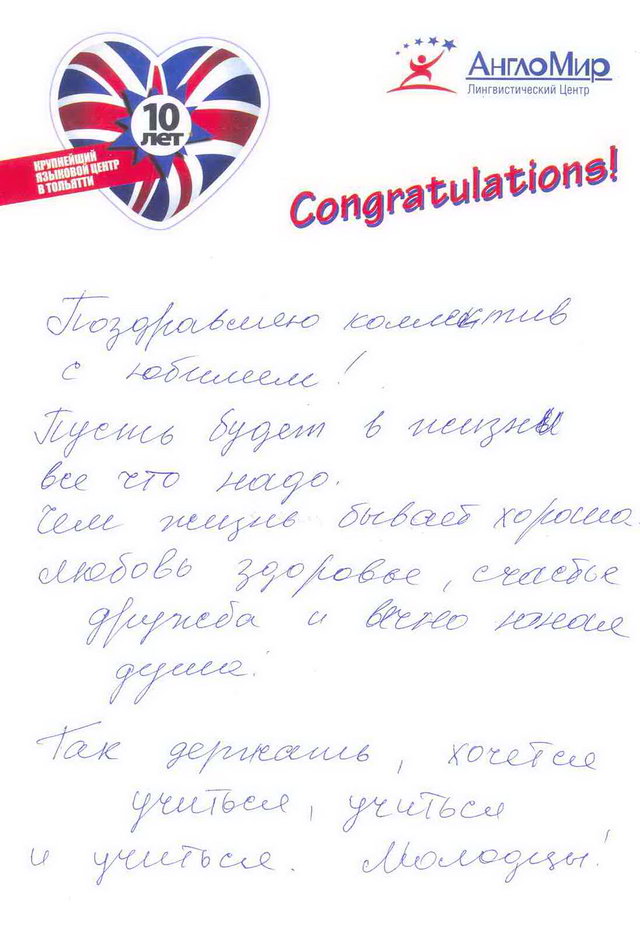 10
лет
КРУПНЕЙШИЙ
ЯЗЫКОВОЙ ЦЕНТР
В ТОЛЬЯТТИ
АнглоМир
Лингвистический Центр
Congratulations!
Поздравляю коллектив
с юбилеем!
Пусть будет в жизни
все что надо.
Чем жизнь бывает хороша
Любовь здоровье, счастье
дружба и вечно юная
душа!
Так держать, хочется
учиться, учиться
и учиться. Молодцы!